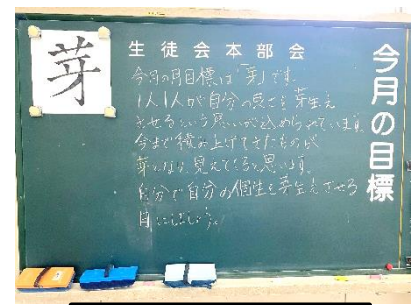 今月の目標
芽
生徒会本部会
今月の月目標は「芽」です。
1人1人が自分の良さを芽生え
させるという思いが込められています。
今まで積み上げてきたものが
芽になり、見えてくると思います。
自分で自分の個性を芽生えさせる
月にしましょう。